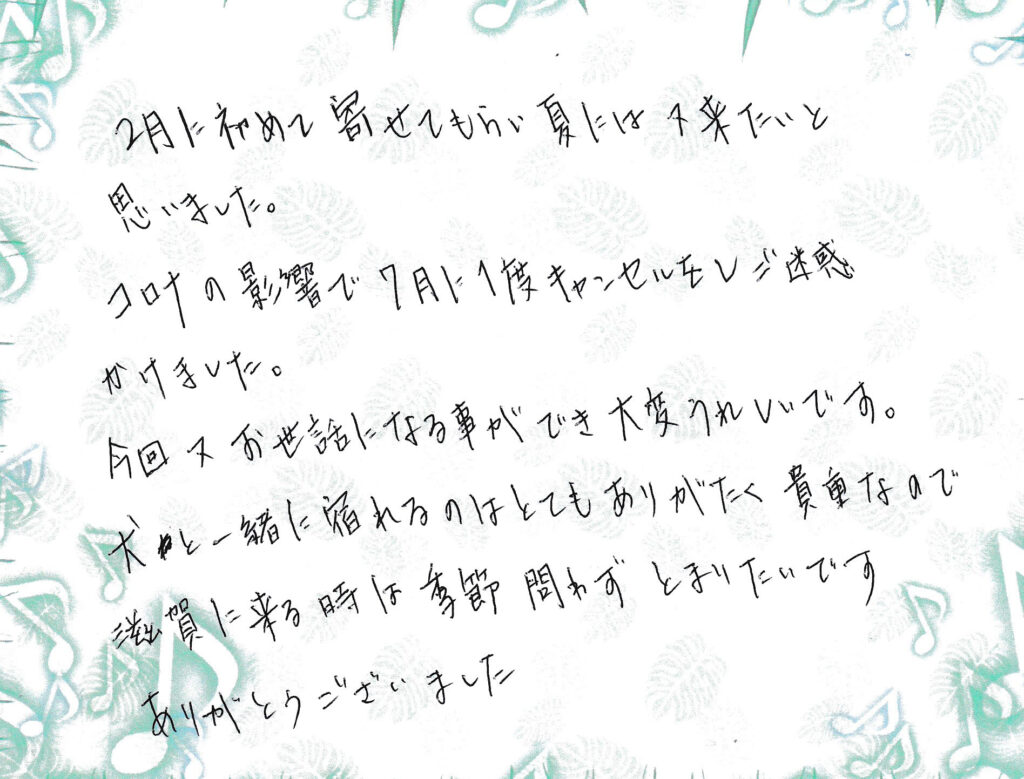 2月に初めて寄せてもらい夏には又来たいと
思いました。
コロナの影響で7月に1度キャンセルをしご迷惑
かけました。
今回又お世話になる事ができ大変うれしいです。
犬と一緒に宿れるのはとてもありがたく貴重なので
滋賀に来る時は季節問わずとまりたいです
ありがとうございました